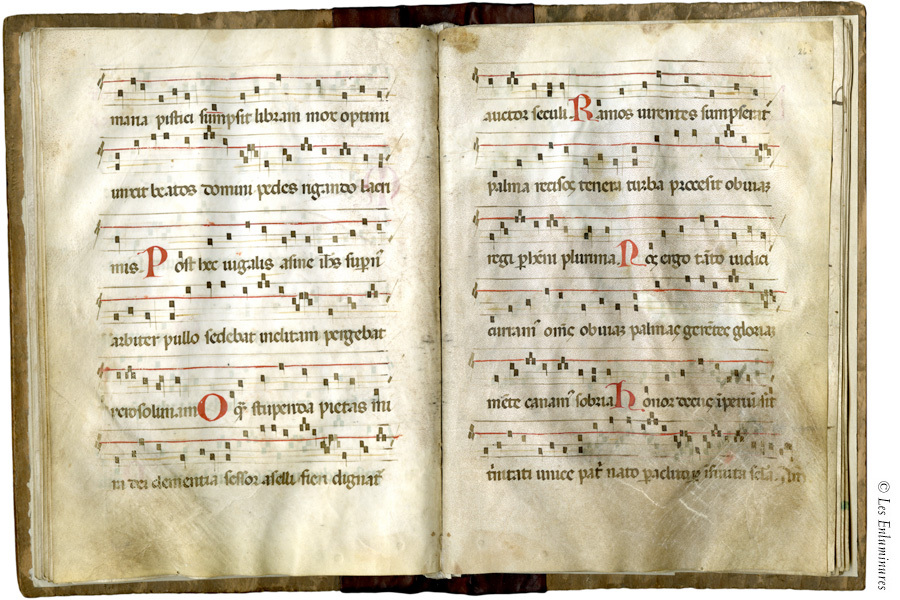 maria pistici sumpsit libram mox optimi
unxit beatos domini pedes rigando lacri
mis. Post hec iugalis asine ihs supñ
arbiter pullo sedebat inclitam pergebat
ierosolimam O q̃ stupenda pietas mi
ra dei clementia sessor aselli fieri dignat᷑
auctor seculi. Ramos uirentes sumpserat
palma recisos tenera turba processit obuiaꝫ
regi perhẽni plurima. Nos ergo tãto iudici
curram᷒ om̃s obuiaꝫ palmas gerẽtes glorie
mẽte canam᷒ sobria Honor decus imperiũ sit
t̃nitati unice pat̃